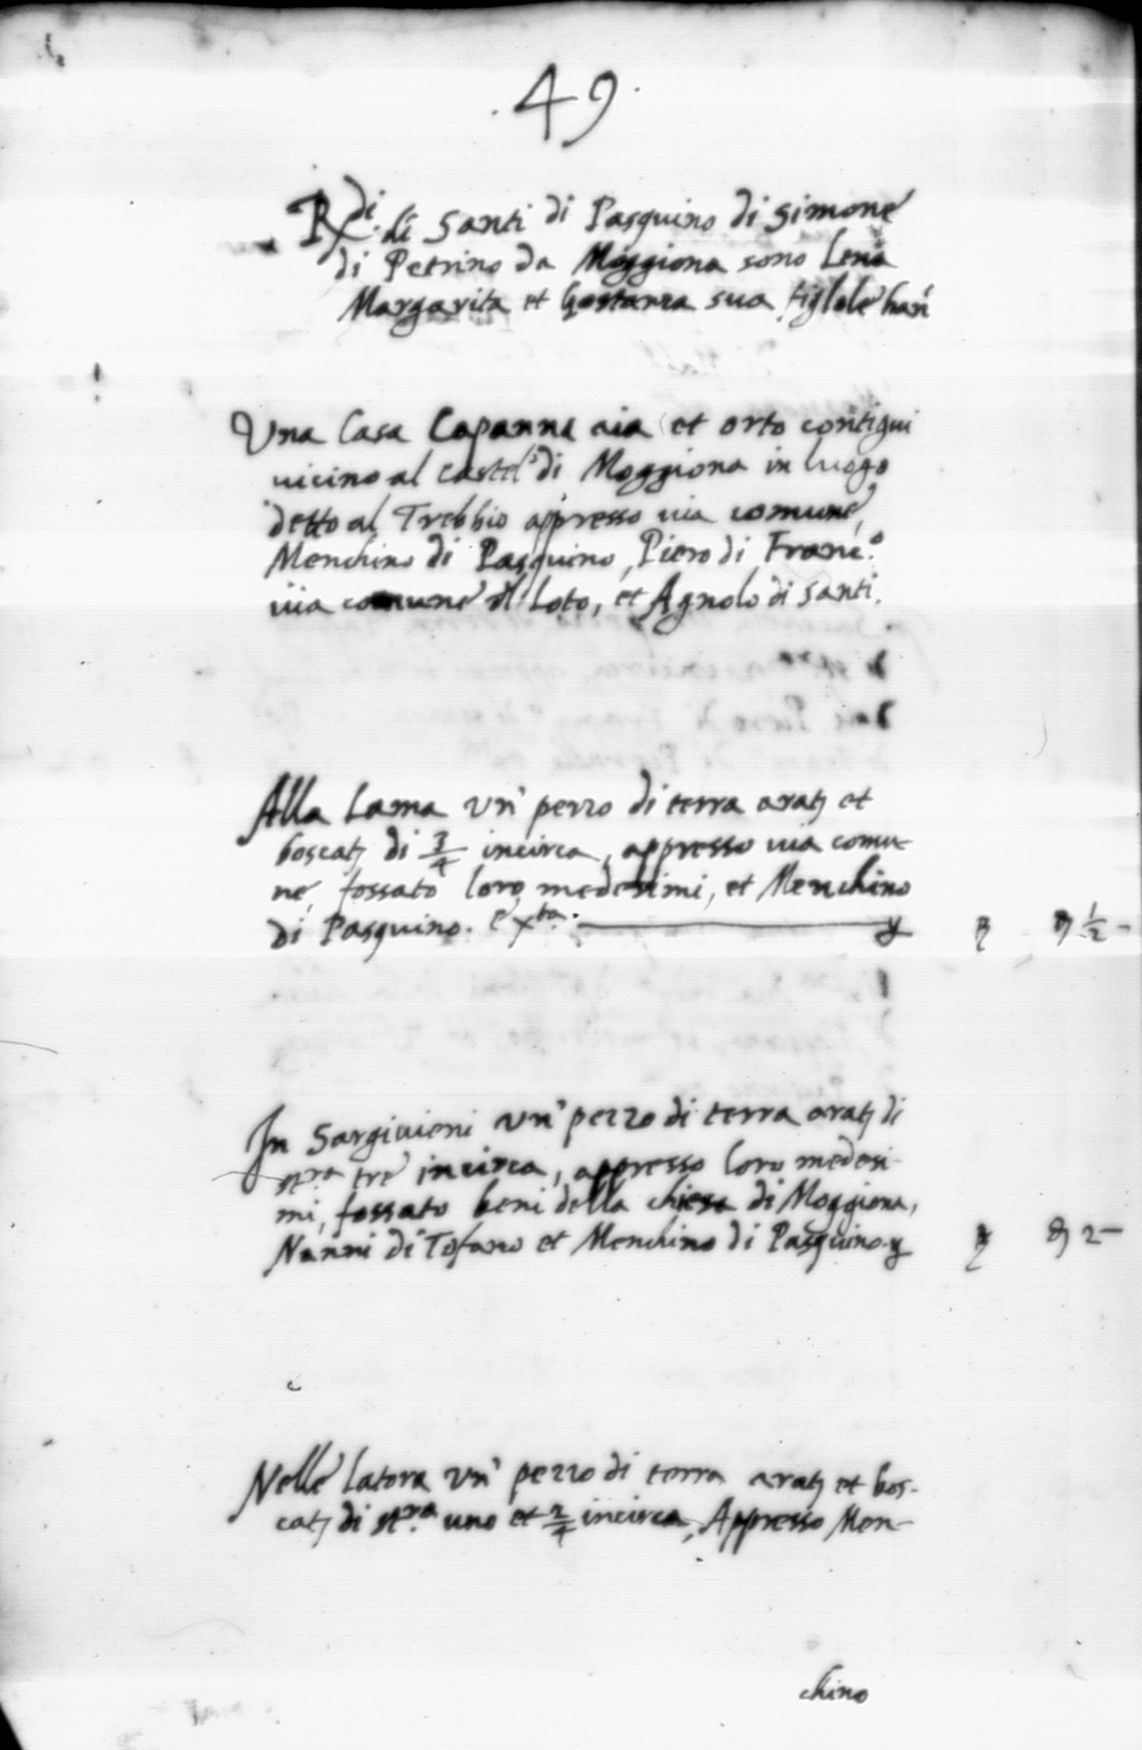 .49.
Rx.di di Santi di Pasquino di Simone
di Petrino da Moggiona sono Lena
Margarita et Gostanza sua figlole han
Una Casa Capanna aia et orto contigui
vicino al castel di Moggiona in luogo
detto al Trebbio appresso via comune,
Menchino di Pasquino, Piero di Franc.o
via comune il Loto, et Agnolo di Santi.
Alla Lama un' pezzo di terra arat. et
boscat. di 3/4 incirca, appresso via comu-
ne, fossato loro medesimi, et Menchino
di Pasquino. 1/2 -
In Sargiuieni un' pezzo di terra arat. di
st.ra tre incirca, appresso loro medesi-
mi, fossato beni della chiesa di Moggiona,
Nanni di Tofano et Menchino di Pasquino. 2 -
Nelle Latora un' pezzo di terra arat. et bos-
cat. di st.ra uno et 2/4 incirca, Appresso Men-
chino